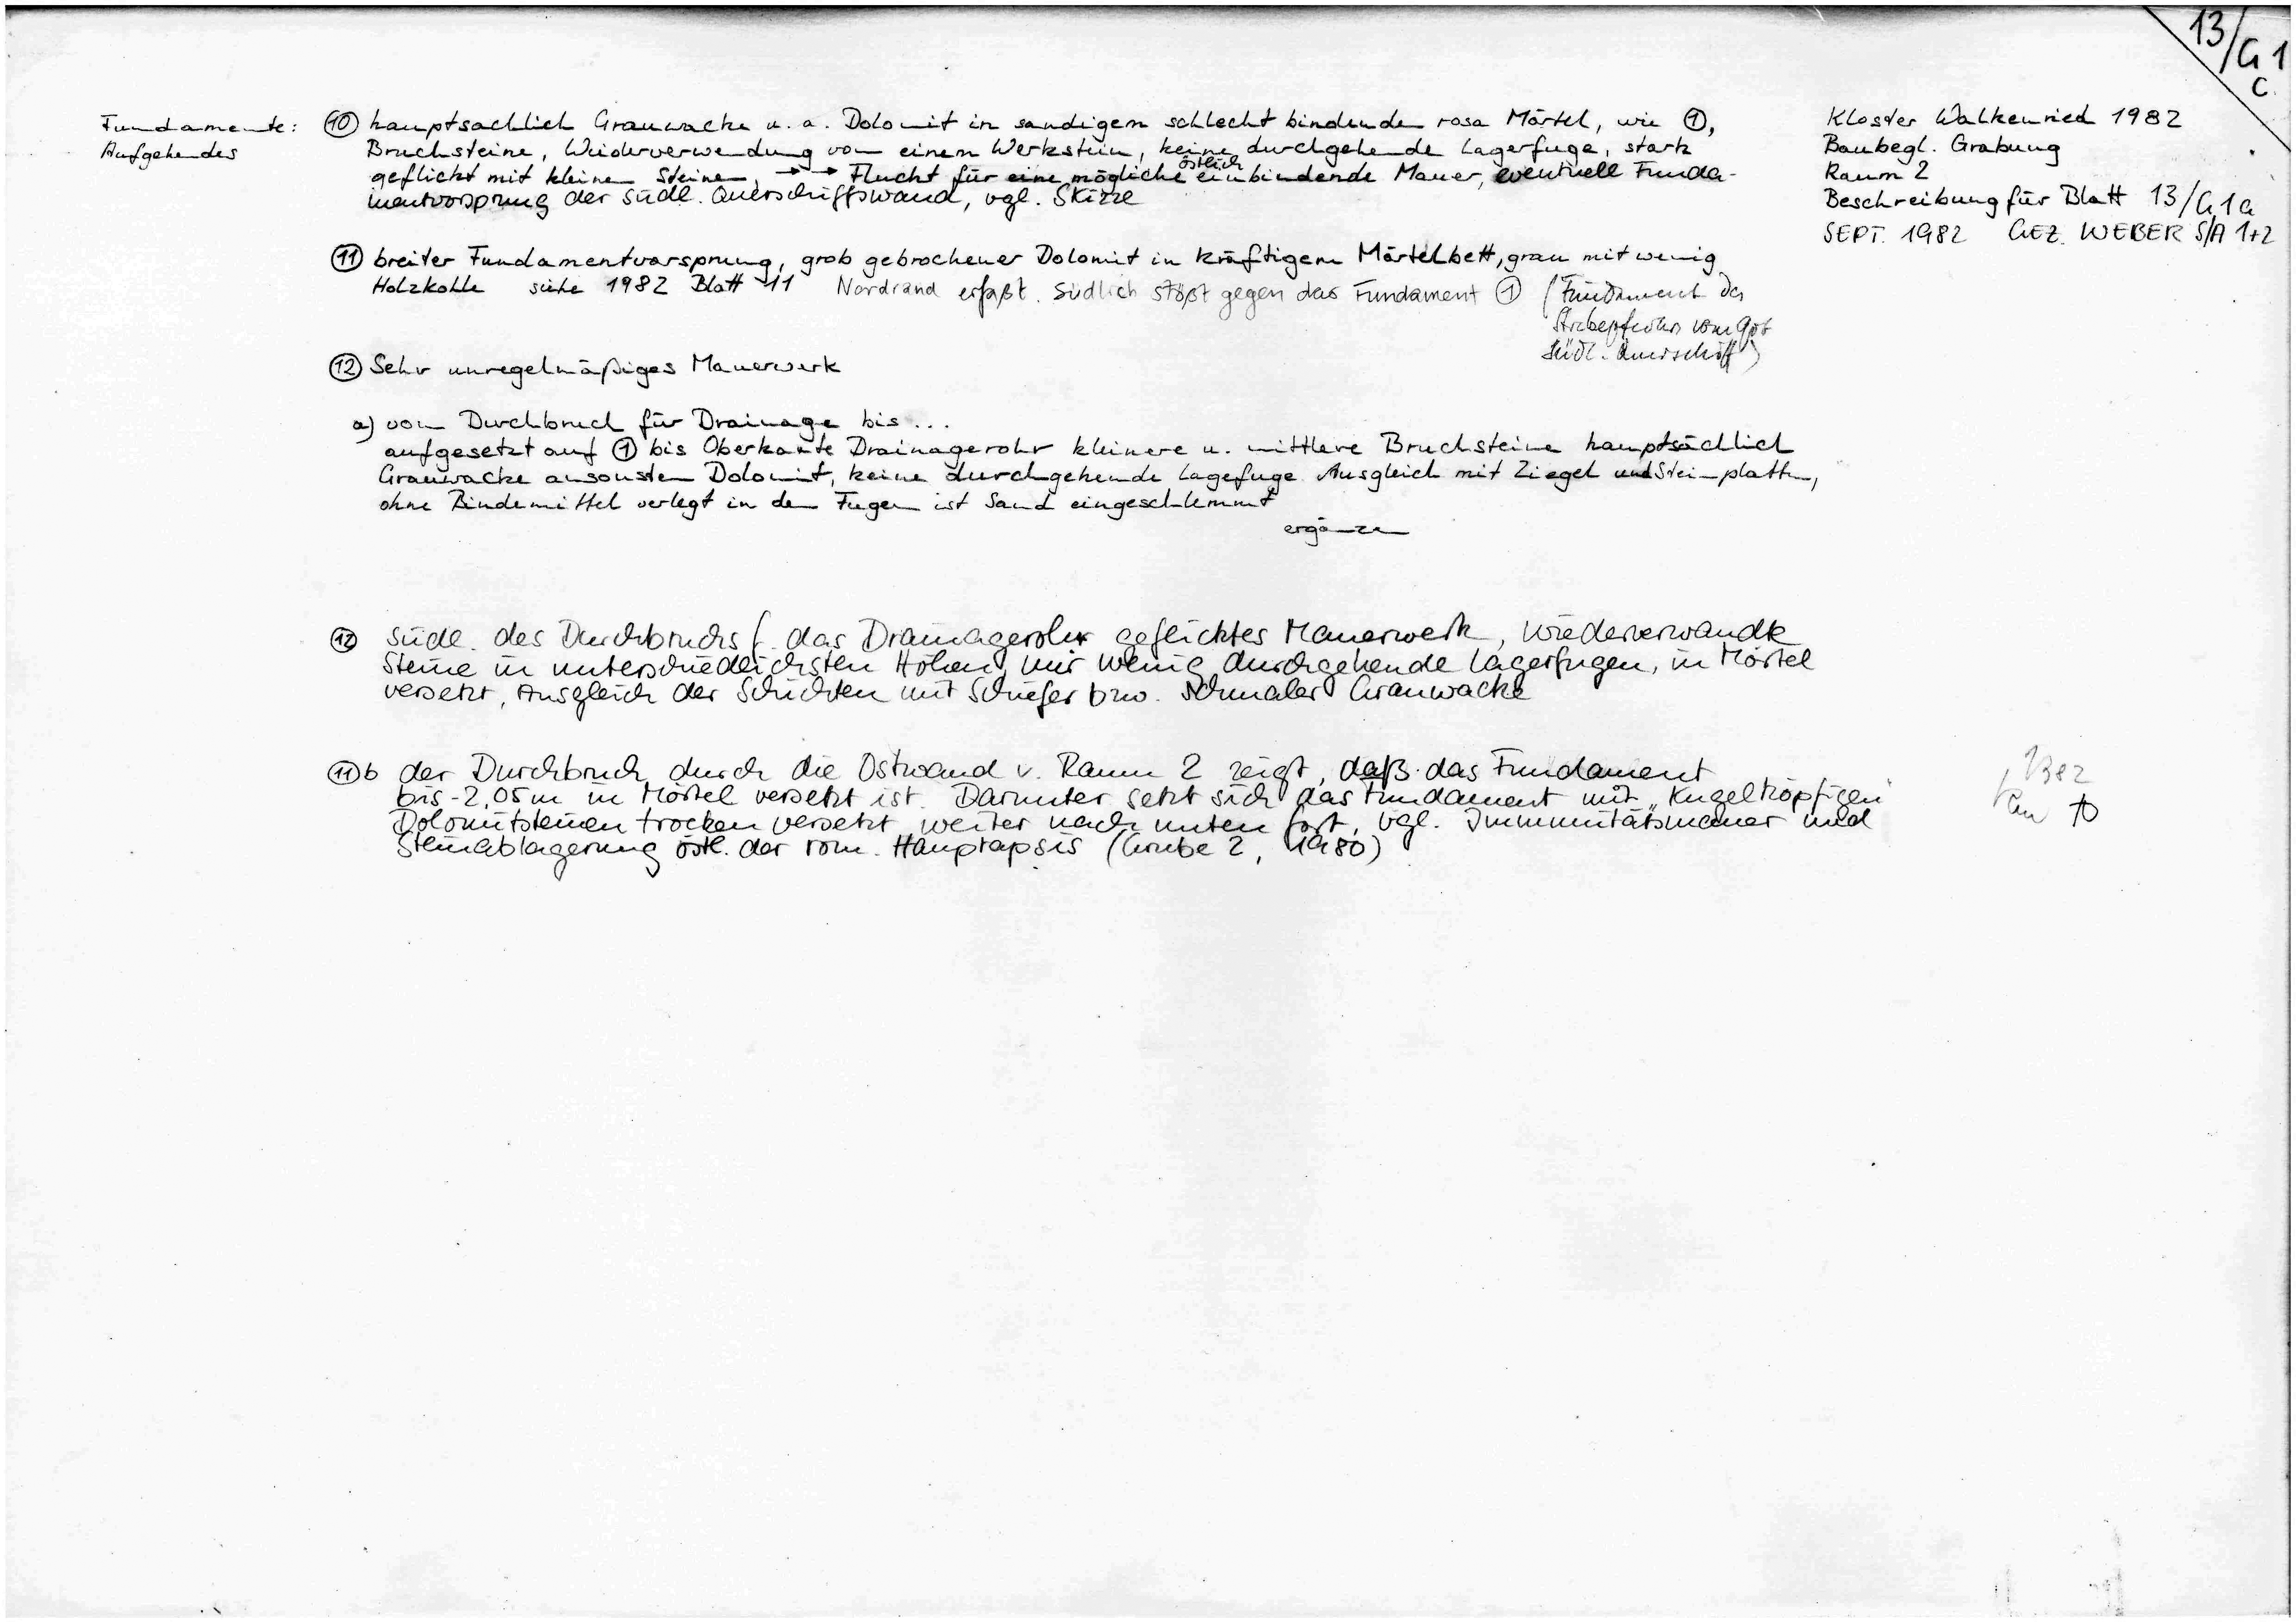 13/G1
c.
Kloster Walkenried 1982
Baubegl. Grabung
Raum 2
Beschreibung für Blatt 13/G1a
SEPT. 1982 GEZ. WEBER S/A 1+2
Fundamente:
Aufgehendes
⑩ hauptsachlich Grauwacke u. a. Dolomit in sandigem schlecht bindenden rosa Mörtel, wie ①,
Bruchsteine, Wiederverwendung von einem Werkstein, keine durchgehende Lagerfuge, stark
geflickt mit kleinen Steinen, →→ Flucht für eine mögliche östlich einbindende Mauer, eventuell Funda-
mentvorsprung der südl. Querschiffswand, vgl. Skizze
⑪ breiter Fundamentvorsprung, grob gebrochener Dolomit in kräftigem Mörtelbett, grau mit wenig
Holzkohle siehe 1982 Blatt 11 Nordrand erfaßt. Südlich stößt gegen das Fundament ① (Fundament des
Strebepfeilers vom got
südl. Querschiff)
⑫ Sehr unregelmäßiges Mauerwerk
a) vom Durchbruch für Drainage bis ...
aufgesetzt auf ① bis Oberkante Drainagerohr kleinere u. mittlere Bruchsteine hauptsächlich
Grauwacke ansonsten Dolomit, keine durchgehende Lagefuge Ausgleich mit Ziegel und Steinplatten,
ohne Bindemittel verlegt in den Fugen ist Sand eingeschlemmt
ergänzen
⑫ südl. des Durchbruchs f. das Drainagerohr geflicktes Mauerwerk, wiederverwandte
Steine in unterschiedlichsten Höhen, nur wenig durchgehende Lagerfugen, in Mörtel
versetzt, Ausgleich der Schichten mit Schiefer bzw. schmaler Grauwacke
⑪b der Durchbruch durch die Ostwand v. Raum 2 zeigt, daß das Fundament
bis -2,05m in Mörtel versetzt ist. Darunter setzt sich das Fundament mit „Kugelköpfigen"
Dolomitsteinen trocken versetzt weiter nach unten fort, vgl. Immunitätsmauer und
Steinablagerung östl. der rom. Hauptapsis (Grube 2, 1980)